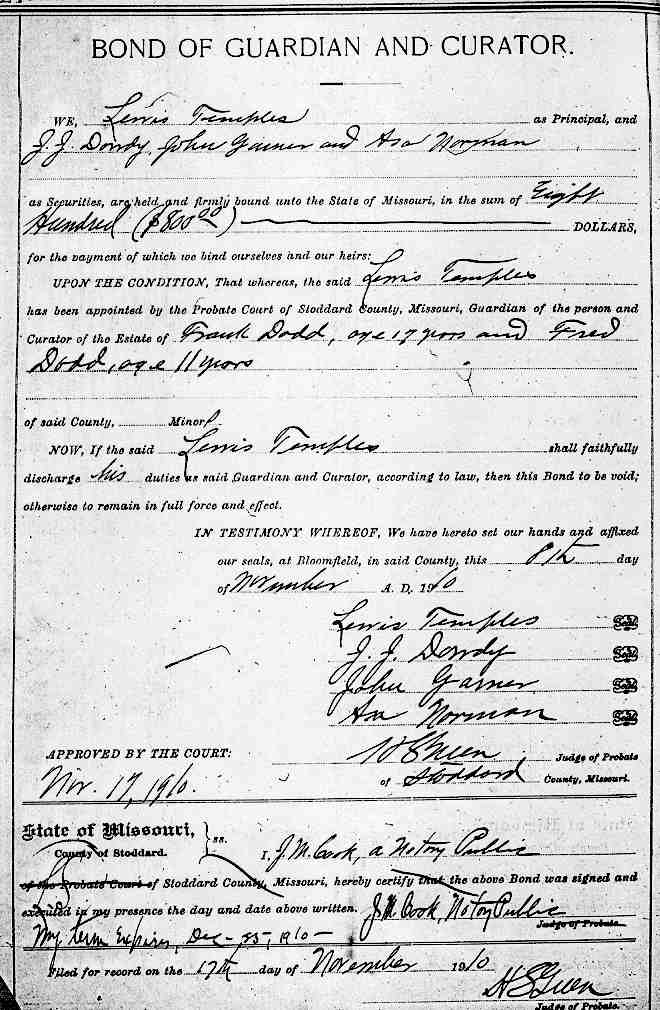 BOND OF GUARDIAN AND CURATOR.
WE, Lewis Temples as Principal, and
J. J. Dowdy, John Garner and Asa Norman
as Securities, are held and firmly bound unto the State of Missouri, in the sum of Eight
Hundred ($800.00) DOLLARS,
for the payment of which we bind ourselves and our heirs:
UPON THE CONDITION, That whereas, the said Lewis Temples
has been appointed by the Probate Court of Stoddard County, Missouri, Guardian of the person and
Curator of the Estate of Frank Dodd, age 17 years and Fred
Dodd, age 11 years
of said County, Minors
NOW, If the said Lewis Temples shall faithfully
discharge his duties as said Guardian and Curator, according to law, then this Bond to be void;
otherwise to remain in full force and effect.
IN TESTIMONY WHEREOF, We have hereto set our hands and affixed
our seals, at Bloomfield, in said County, this 8th day
of November A. D. 1910
Lewis Temples Seal
J. J. Dowdy Seal
John Garner Seal
Asa Norman Seal
APPROVED BY THE COURT: Green, Judge of Probate
Nov. 17, 1910. of Stoddard County, Missouri.
State of Missouri, } ss.
County of Stoddard. I, J. M. Cook, a Notary Public
of the Probate Court of Stoddard County, Missouri, hereby certify that the above Bond was signed and
executed in my presence the day and date above written. J. M. Cook, Notary Public
Judge of Probate.
My term Expires, Dec - 25, 1910 -
Filed for record on the 17th day of November 1910
Green
Judge of Probate.